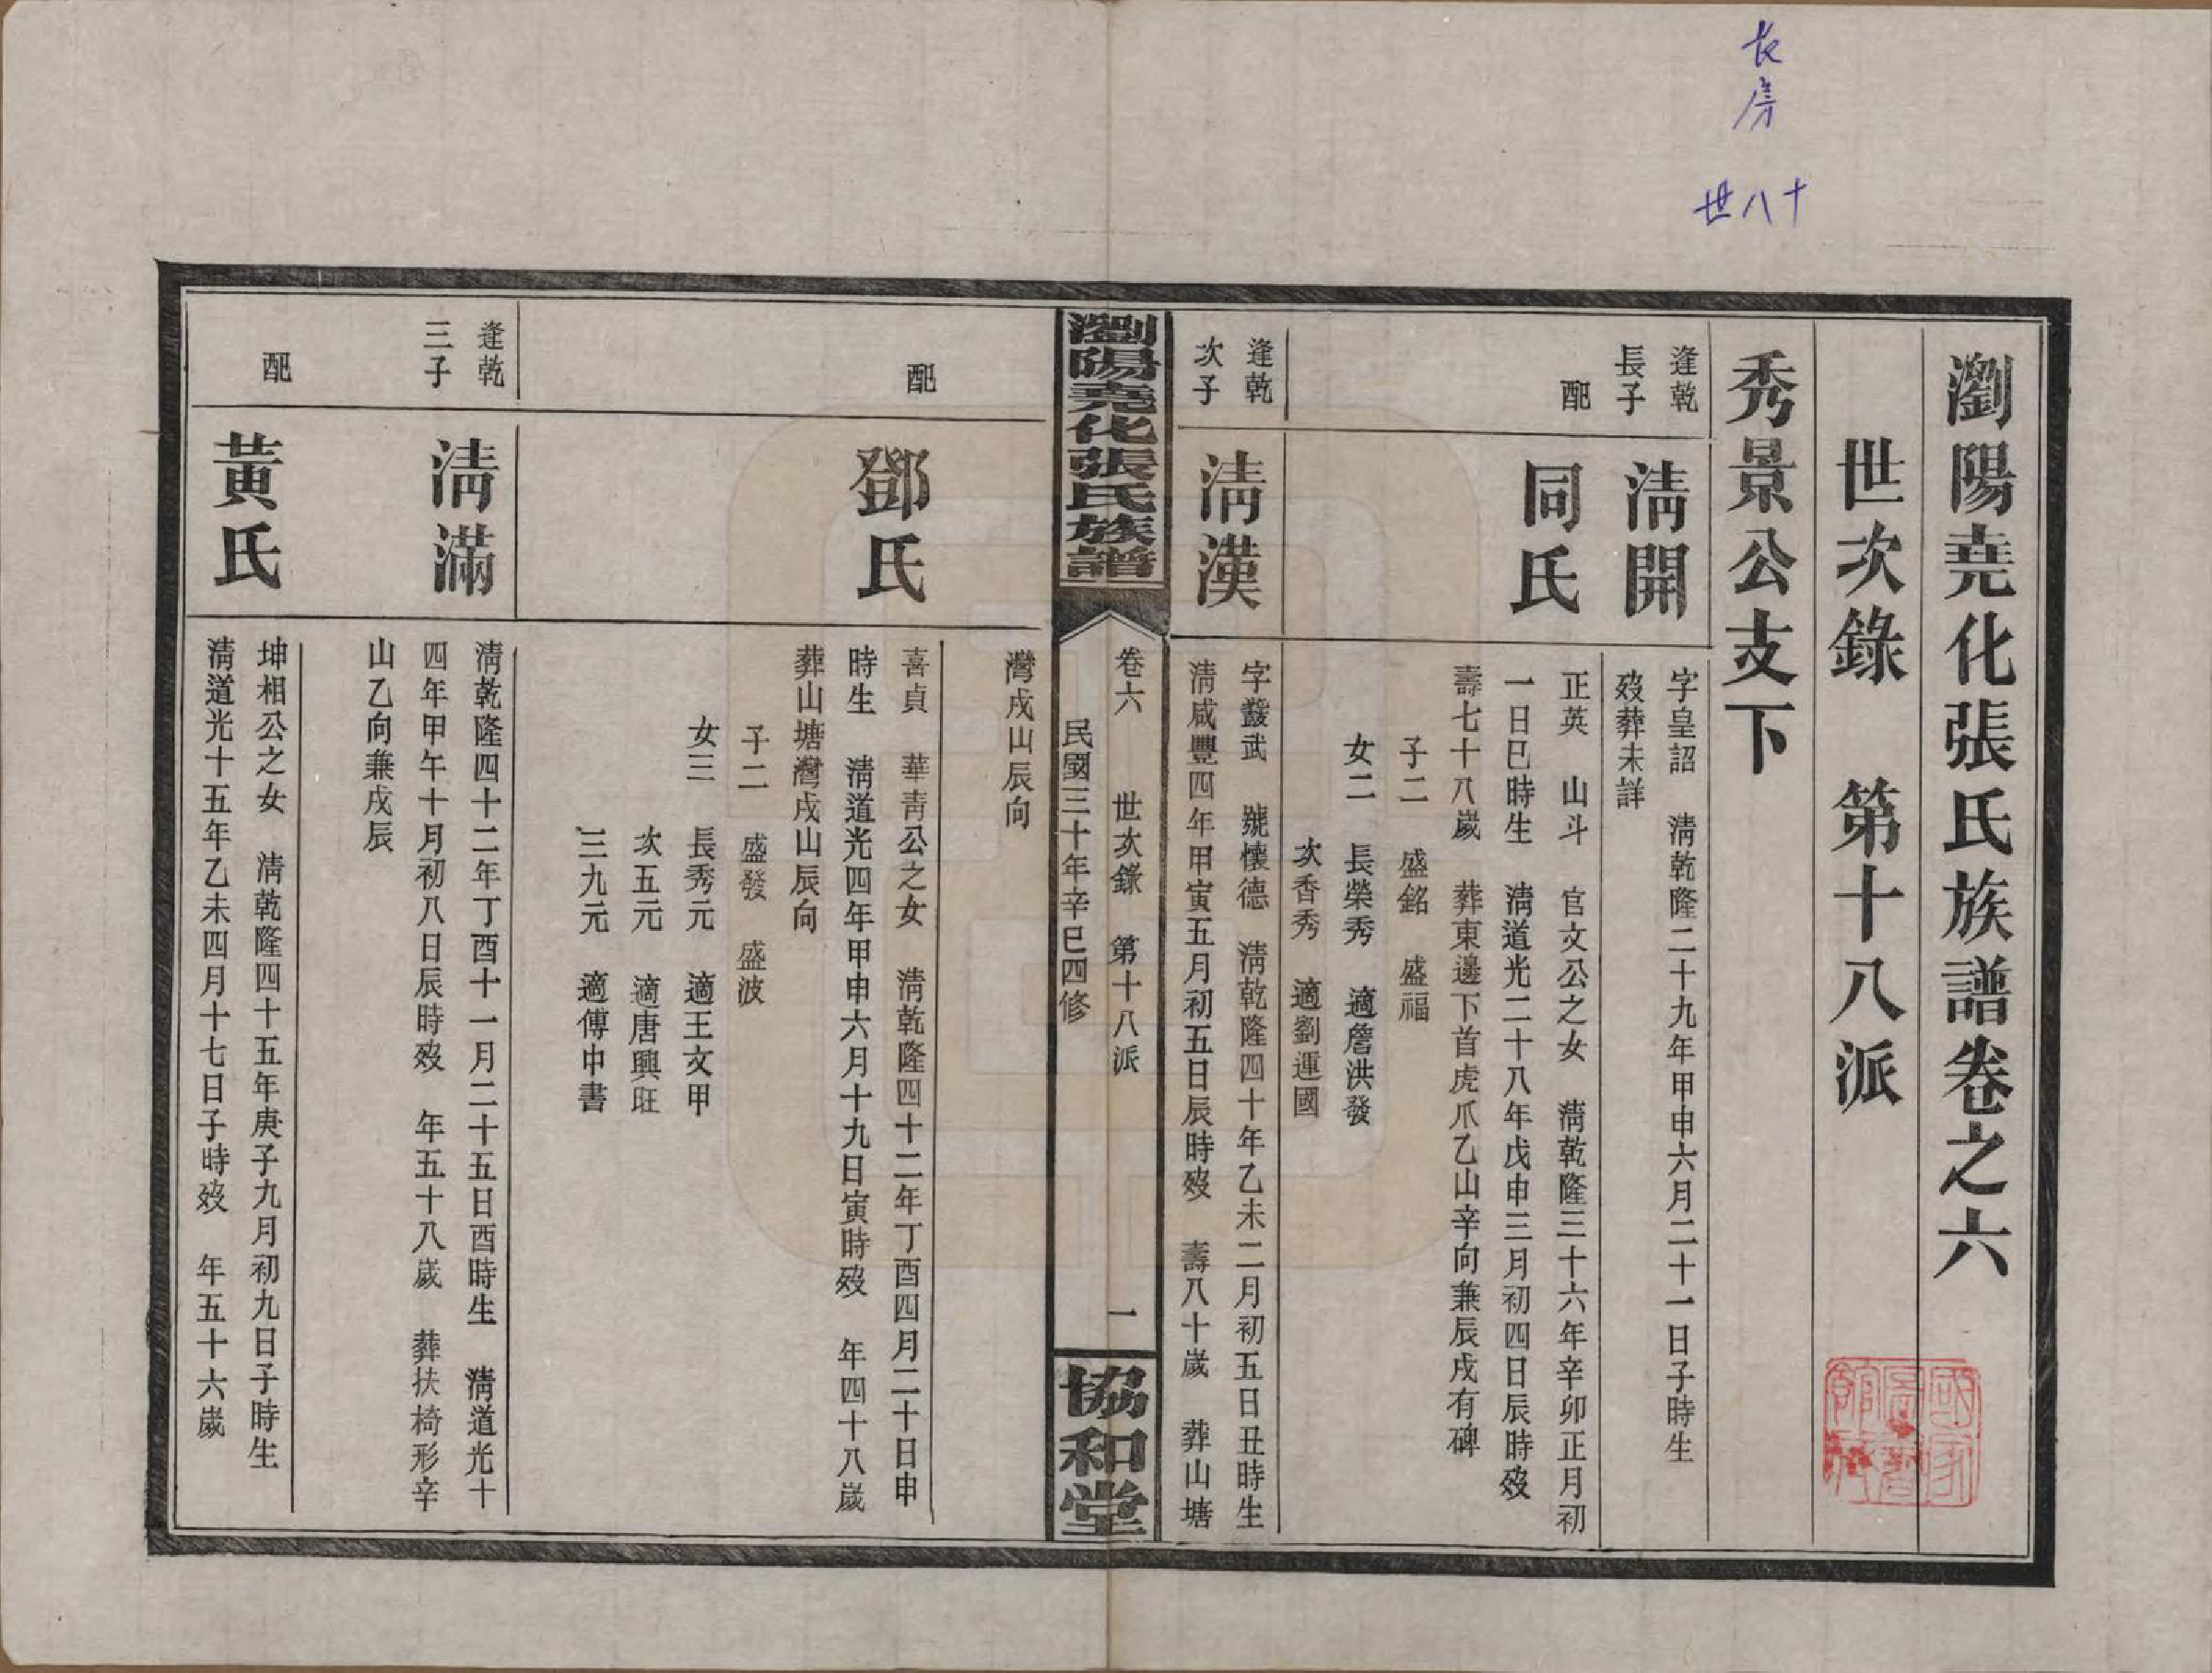 长房
十八世
瀏陽堯化張氏族譜卷之六
世次錄　第十八派
秀景公支下
逢乾
長子
清開
字皇詔　清乾隆二十九年甲申六月二十一日子時生
歿葬未詳
配
同氏
正英　山斗　官文公之女　清乾隆三十六年辛卯正月初
一日巳時生　清道光二十八年戊申三月初四日辰時歿
壽七十八歲　葬東邊下首虎爪乙山辛向兼辰戌有碑
子二　盛銘　盛福
女二　長榮秀　適詹洪發
次香秀　適劉運國
逢乾
次子
清漢
字黻武　號懷德　清乾隆四十年乙未二月初五日丑時生
清咸豐四年甲寅五月初五日辰時歿　壽八十歲　葬山塘
瀏陽堯化張氏族譜
卷六　世次錄　第十八派　一
民國三十年辛巳四修
協和堂
灣戌山辰向
配
鄧氏
喜貞　華青公之女　清乾隆四十二年丁酉四月二十日申
時生　清道光四年甲申六月十九日寅時歿　年四十八歲
葬山塘灣戌山辰向
子二　盛發　盛波
女三　長秀元　適王文甲
次五元　適唐興旺
三九元　適傅中書
逢乾
三子
清滿
清乾隆四十二年丁酉十一月二十五日酉時生　清道光十
四年甲午十月初八日辰時歿　年五十八歲　葬扶椅形辛
山乙向兼戌辰
配
黃氏
坤相公之女　清乾隆四十五年庚子九月初九日子時生
清道光十五年乙未四月十七日子時歿　年五十六歲